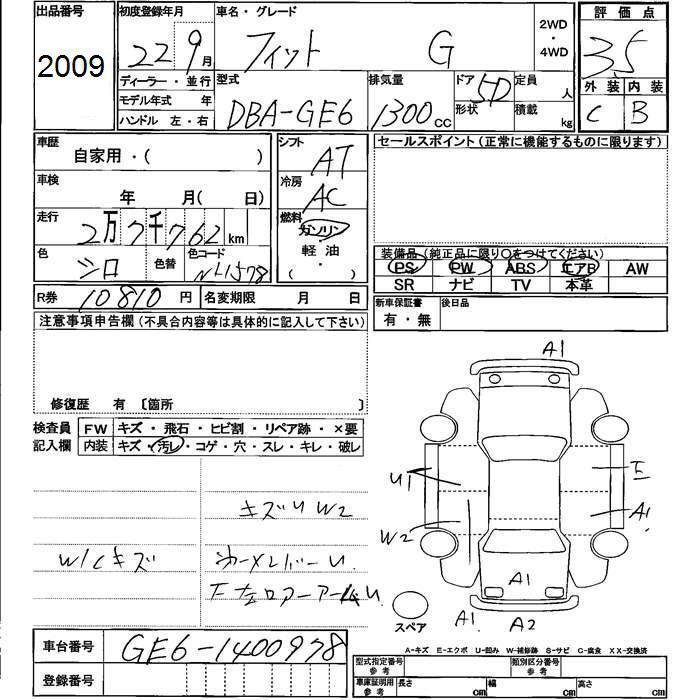 出品番号
2009
初度登録年月
22 9月
ディーラー・並行
モデル年式 年
ハンドル 左・右
車名・グレード
フィット G
2WD
・
4WD
型式
DBA-GE6
排気量
1300cc
ドア 5D
形状
定員 人
積載 kg
評価点
3.5
外装 内装
C B
車歴
自家用・( )
車検
年 月( 日)
走行
2万7千762km
色
シロ
色替
色コード
シフト
AT
冷房
AC
燃料
ガソリン
・
軽油
( )
セールスポイント(正常に機能するものに限ります)
装備品(純正品に限り○をつけてください)
PS PW ABS エアB AW
SR ナビ TV 本革
R券 10810円 名変期限 月 日
新車保証書
有・無
後日品
注意事項申告欄(不具合内容等は具体的に記入して下さい)
修復歴 有 〔箇所 〕
検査員
記入欄
FW キズ・飛石・ヒビ割・リペア跡・×要
内装 キズ・汚レ・コゲ・穴・スレ・キレ・破レ
キズU W2
W/Cキズ
A1
U1
E
A1
W2
A1
A1
A2
スペア
A-キズ E-エクボ U-凹み W-補修跡 S-サビ C-腐食 XX-交換済
車台番号
GE6-1400978
登録番号
型式指定番号
参考
類別区分番号
参考
車庫証明用
参考
長さ cm
幅 cm
高さ cm